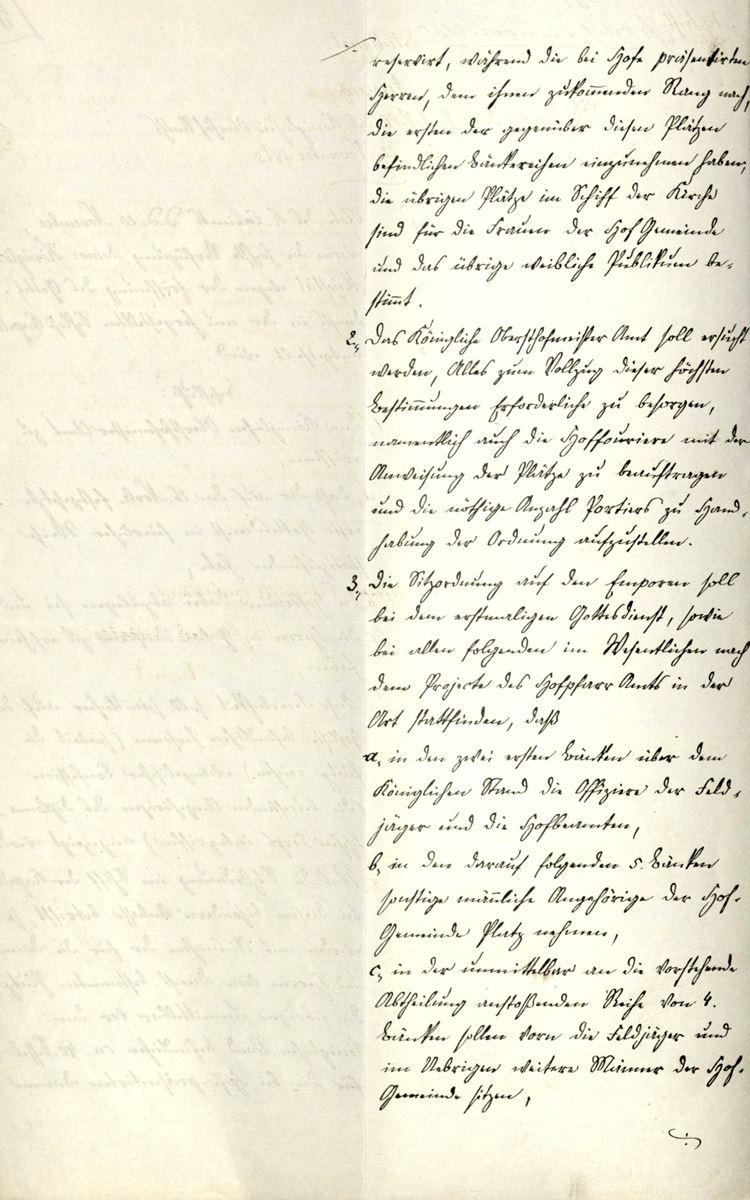 reservirt, während die bei Hofe präsentirten
Herren, dem ihnen zukom̄enden Rang nach,
die ersten der gegenüber diesen Plätzen
befindlichen Bänkereihen einzunehmen haben,
die übrigen Plätze im Schiff der Kirche
sind für die Frauen der Hof Gemeinde
und das übrige weibliche Publikum be-
stim̄t.
2., Das Königliche Obersthofmeister Amt soll ersucht
werden, Alles zum Vollzug dieser höchsten
Bestim̄ungen Erforderliche zu besorgen,
namentlich auch die Hoffouriere mit der
Anweisung der Plätze zu beauftragen
und die nöthige Anzahl Portiers zu Hand-
habung der Ordnung aufzustellen.
3., Die Sitzordnung auf den Emporen soll
bei dem erstmaligen Gottesdienst, sowie
bei allen folgenden im Wesentlichen nach
dem Projecte des Hofpfarr Amts in der
Art stattfinden, daß
a, in den zwei ersten Bänken über dem
Königlichen Stand die Offiziere der Feld-
jäger und die Hofbeamten,
b, in den darauf folgenden 5. Bänken
sonstige män̄liche Angehörige der Hof-
Gemeinde Platz nehmen,
c, in der unmittelbar an die vorstehende
Abtheilung anstoßenden Reihe von 4.
Bänken sollen vorn die Feldjäger und
im Uebrigen weitere Männer der Hof-
Gemeinde sitzen,